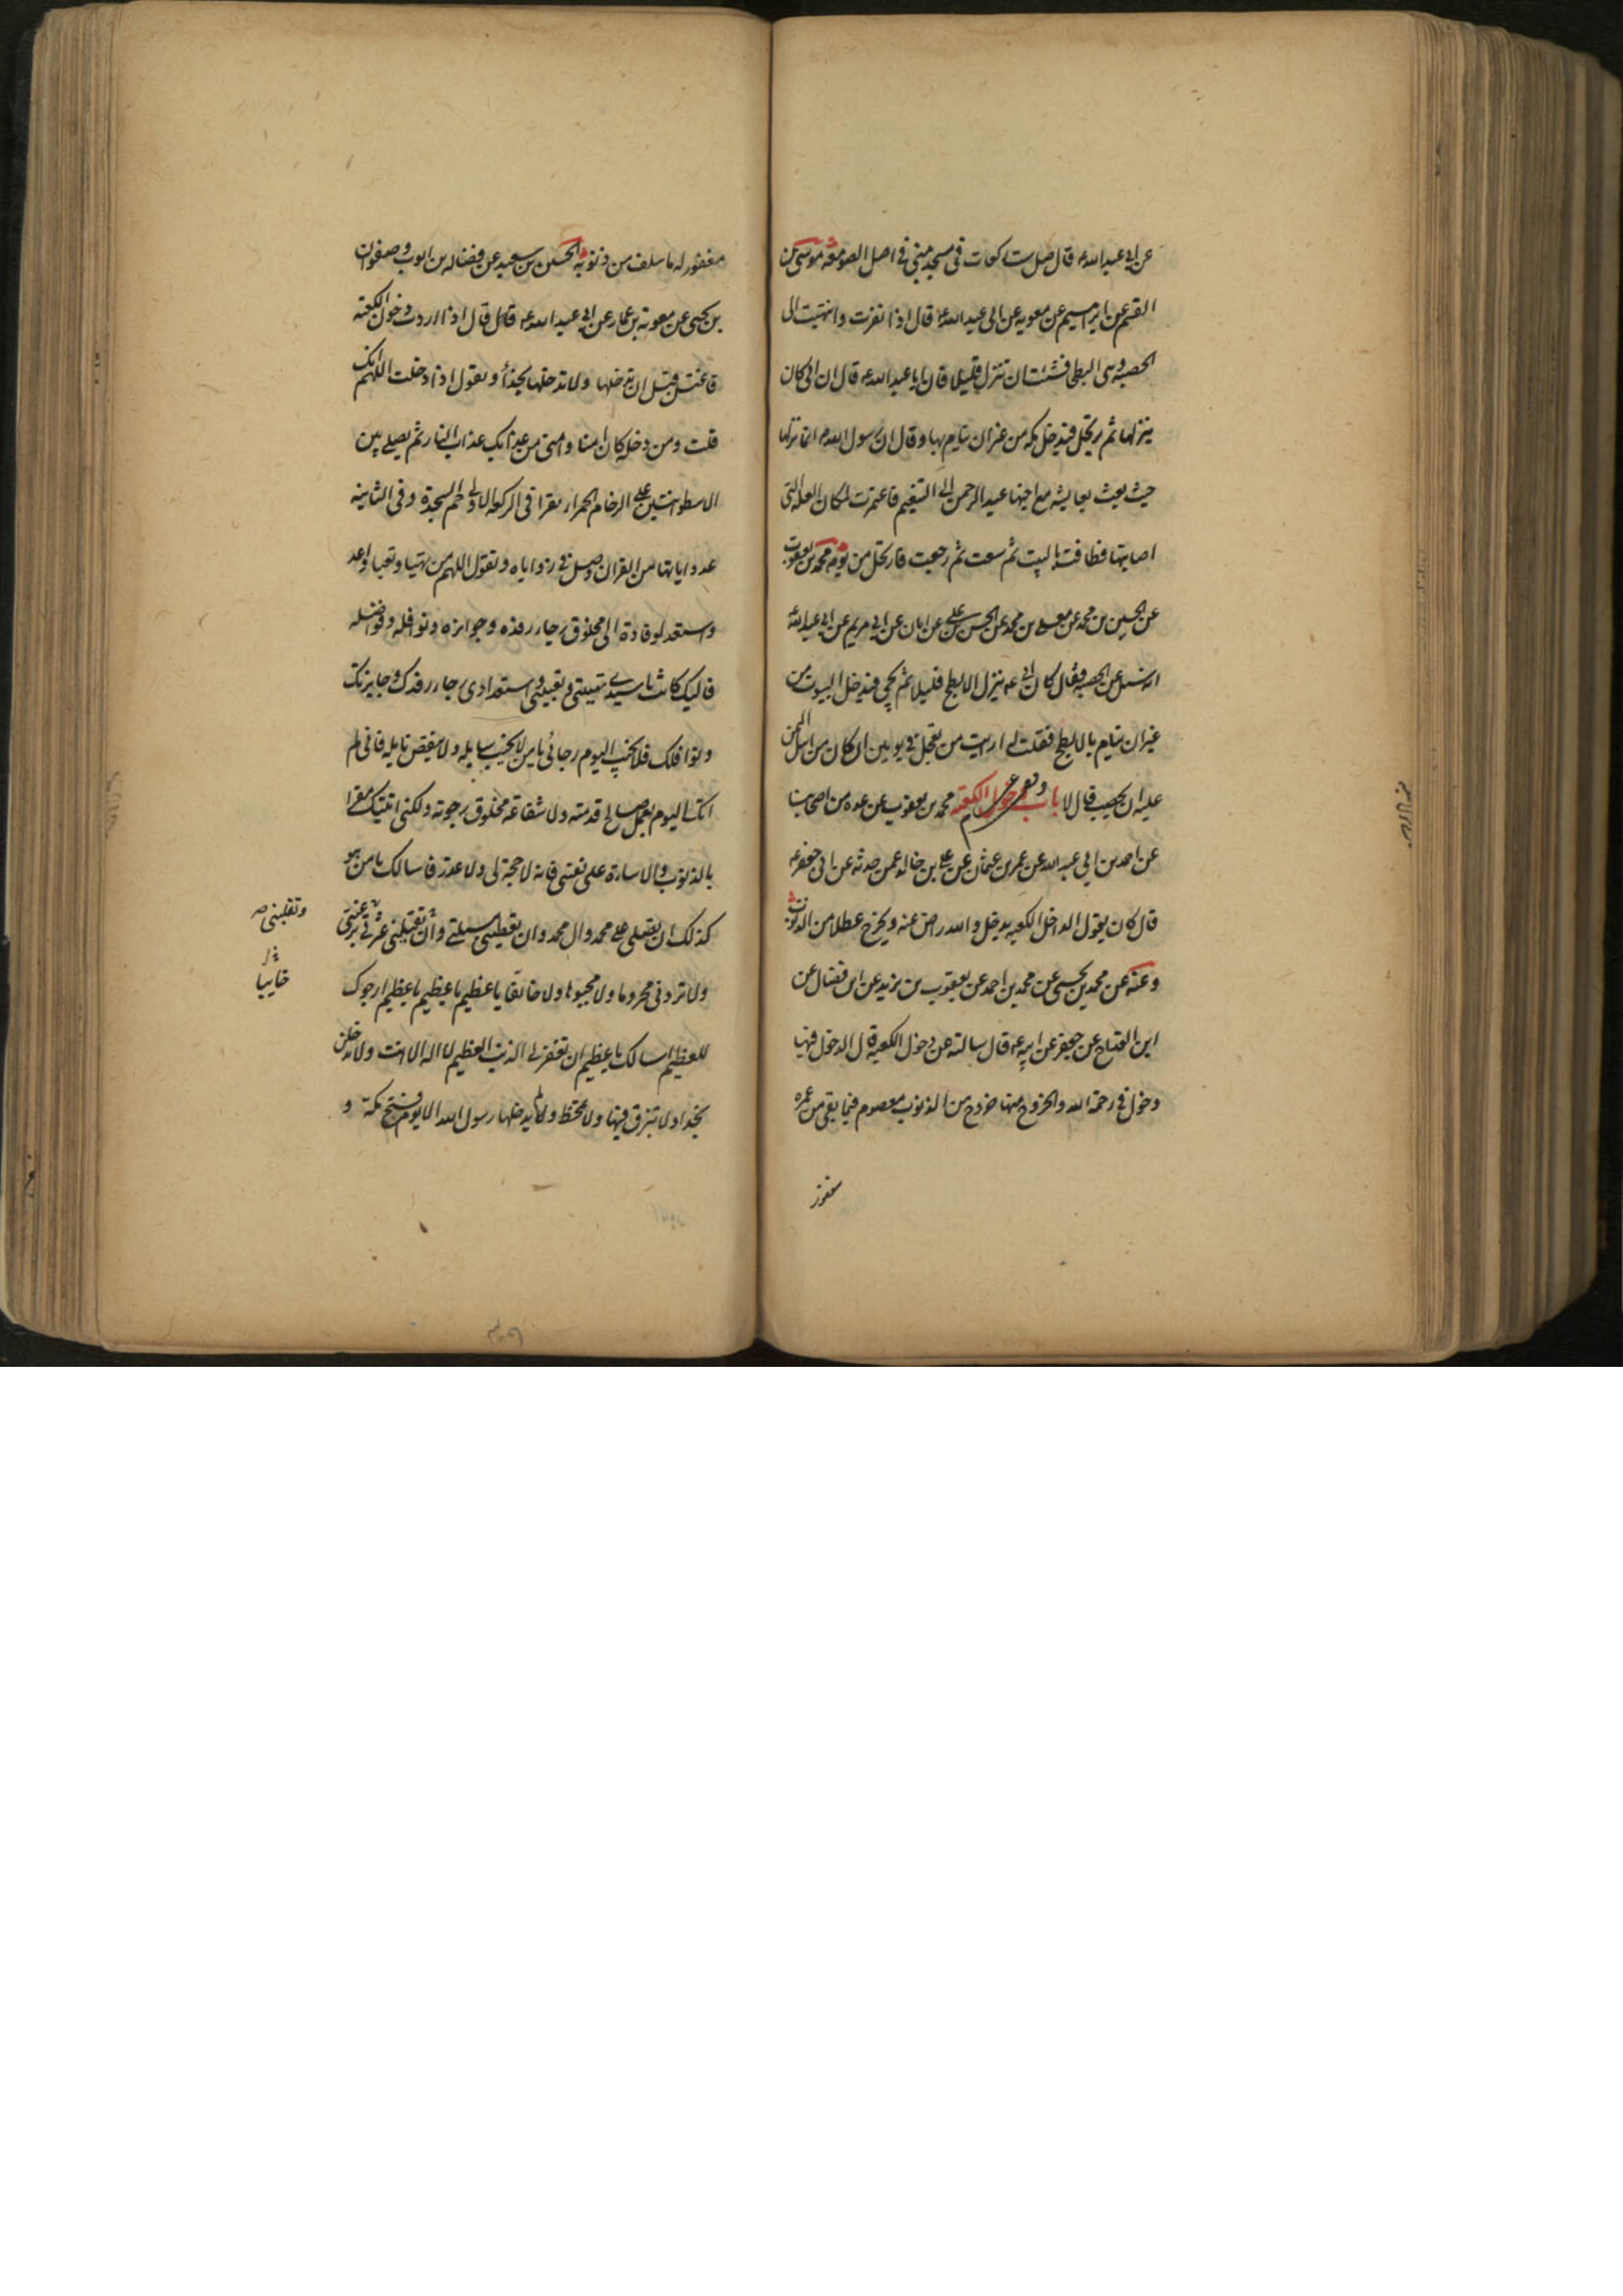 عن ابي عبد الله ع قال صل ست ركعات في مسجد مني في اصل الصومعة موسى بن
القسم عن ابراهيم عن معوية عن ابي عبد الله ع قال اذا نفرت وانتهيت الى
الحصبة وهي البطحا فشئت ان تنزل قليلا فان ابا عبد الله ع قال ان ابي كان
ينزلها ثم يرتحل فيدخل مكة من غير ان ينام بها وقال ان رسول الله ص انما نزلها
حيث بعث بعايشه مع اخيها عبد الرحمن الى التنعيم فاعتمرت لمكان العلة التي
اصابتها فطافت بالبيت ثم سعت ثم رجعت فارتحل من يومه محمد بن يعقوب
عن الحسين بن محمد عن معلى بن محمد عن الحسن بن علي عن ابان عن ابي مريم عن ابي عبد الله
انه سئل عن الحصبة فقال كان ابي ع ينزل الابطح قليلا ثم يجي فيدخل البيوت من
غير ان ينام بالابطح فقلت له ارايت من تعجل في يومين ان كان من اهل اليمن
عليه ان يحصب قال لا باب دخول الكعبة محمد بن يعقوب عن عدة من اصحابنا
عن احمد بن ابي عبد الله عن عمرو بن عثمان عن علي بن خالد عمن حدثه عن ابي جعفر ع
قال كان يقول الداخل الكعبة يدخل والله راض عنه ويخرج عطلا من الذنوب
وعنه عن محمد بن يحيى عن محمد بن احمد عن يعقوب بن يزيد عن ابن فضال عن
ابن القداح عن جعفر عن ابيه ع قال سالته عن دخول الكعبة قال الدخول فيها
دخول في رحمة الله والخروج منها خروج من الذنوب معصوم فيما بقي من عمره
مغفور
مغفور له ما سلف من ذنوبه الحسين بن سعيد عن فضاله بن ايوب وصفوان
بن يحيى عن معوية بن عمار عن ابي عبد الله ع قال قال اذا اردت دخول الكعبة
فاغتسل قبل ان تدخلها ولا تدخلها بحذاء وتقول اذا دخلت اللهم انك
قلت ومن دخله كان امنا وامنى من عذابك عذاب النار ثم يصلي بين
الاسطوانتين على الرخام الحمراء يقرا في الركعة الاولى حم السجدة وفي الثانية
عدد اياتها من القران وصل في زواياه وتقول اللهم من تهيا وتعبا واعد
واستعد لوفادة الى مخلوق رجاء رفده وجوايزه ونوافله وفواضله
فاليك كانت يا سيدي تهيئتي وتعبيتي واستعدادي رجاء رفدك وجايزتك
ونوافلك فلا تخيب اليوم رجائي يا من لا يخيب سايله ولا ينقص نايله فاني لم
اتك اليوم بعمل صالح قدمته ولا شفاعة مخلوق رجوته ولكني اتيتك مقرا
بالذنوب والاساءة على نفسي فانه لا حجة لي ولا عذر فاسالك يا من هو
كذلك ان تصلي على محمد وال محمد وان تعطيني مسئلتي وان تقيلني عثرتي
ولا تردني محروما ولا مجبوها ولا خائبا يا عظيم يا عظيم يا عظيم ارجوك
للعظيم اسالك يا عظيم ان تغفر لي الذنب العظيم لا اله الا انت ولا تدخلن
بحذاء ولا تبزق فيها ولا تمتخط ولم يدخلها رسول الله الا يوم فتح مكة و
وتقلبني
خايبا